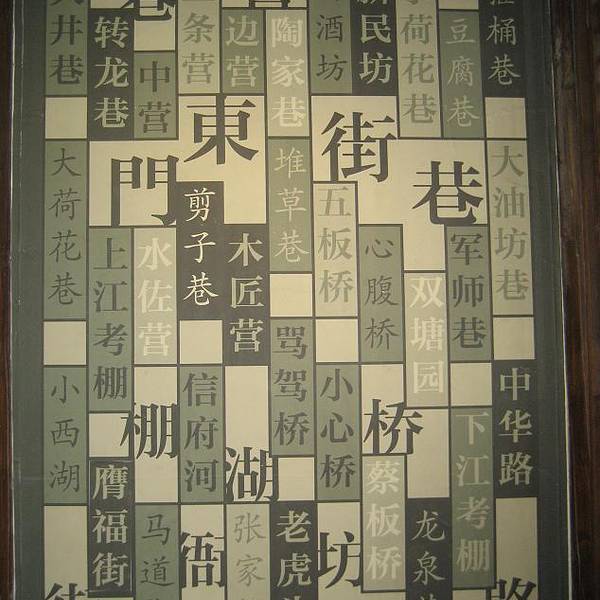 井巷
转龙巷
中营
条营
边营
陶家巷
酒坊
新民坊
荷花巷
豆腐巷
桶巷
東
門
街
巷
大荷花巷
上江考棚
水佐营
剪子巷
木匠营
堆草巷
五板桥
心腹桥
双塘园
军师巷
大油坊巷
小西湖
棚
信府河
湖
骂驾桥
小心桥
桥
下江考棚
中华路
膺福街
马道
衙
张家
老虎
坊
蔡板桥
龙泉
路